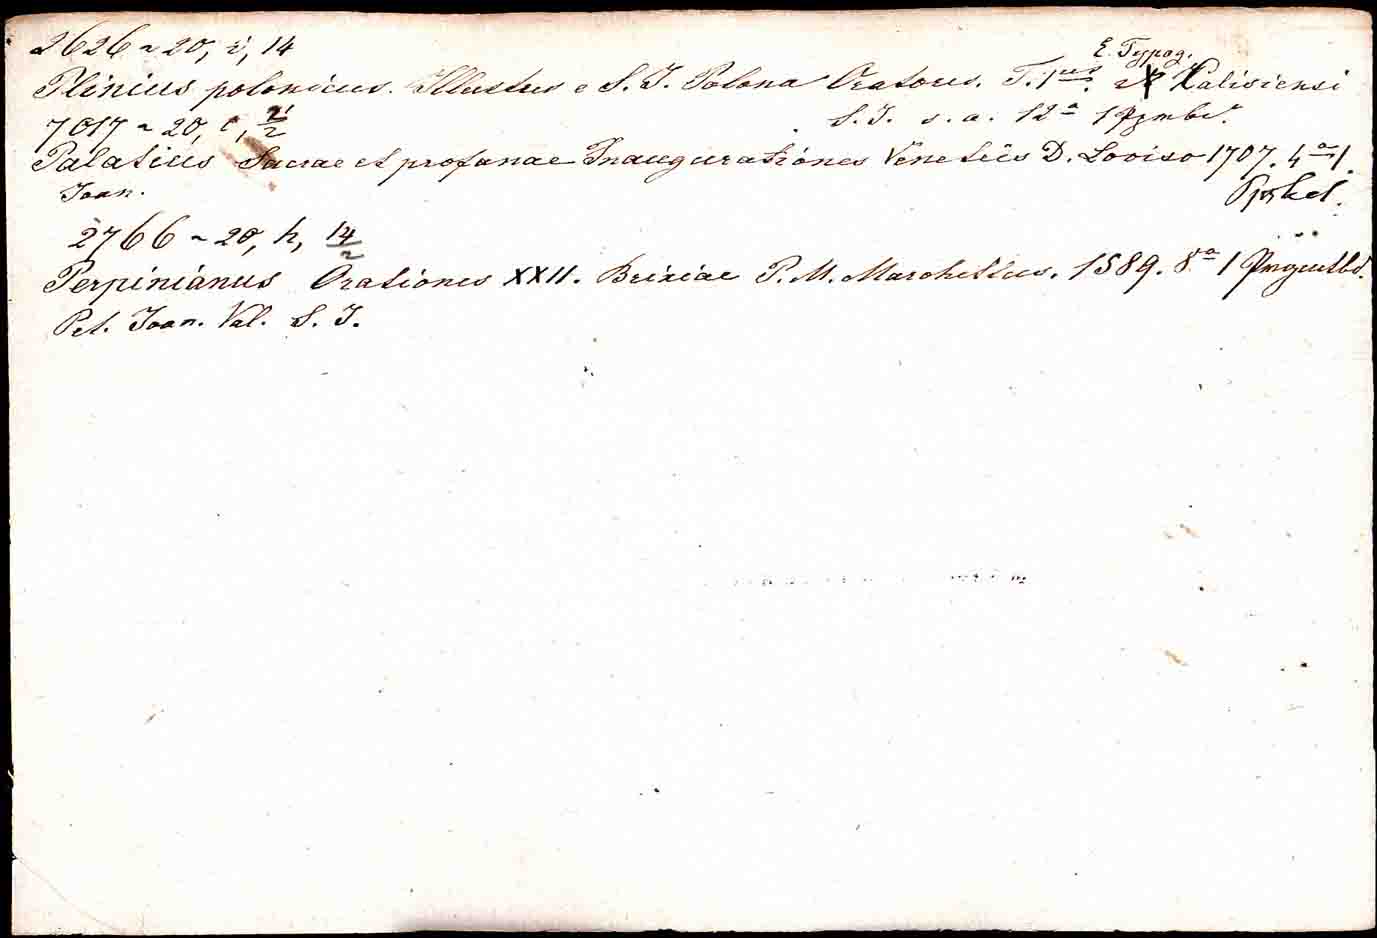 2626 ~ 20, i, 14
E. Typog.
Plinius polonicus. Illustres e S. J. Polona Oratores. T. 1us. Kalisiensi
S. J. s. a. 12a 1
7017 ~ 20, c, 21/2
Palatius Sacrae et profanae Inaugurationes Venetiis D. Loviso 1707. 4a 1.
Joan.
2766 ~ 20, h, 14/2
Perpinianus Orationes XXII. Brixiae P. M. Marchettus. 1589. 8a 1
Pet. Joan. Val. S. J.